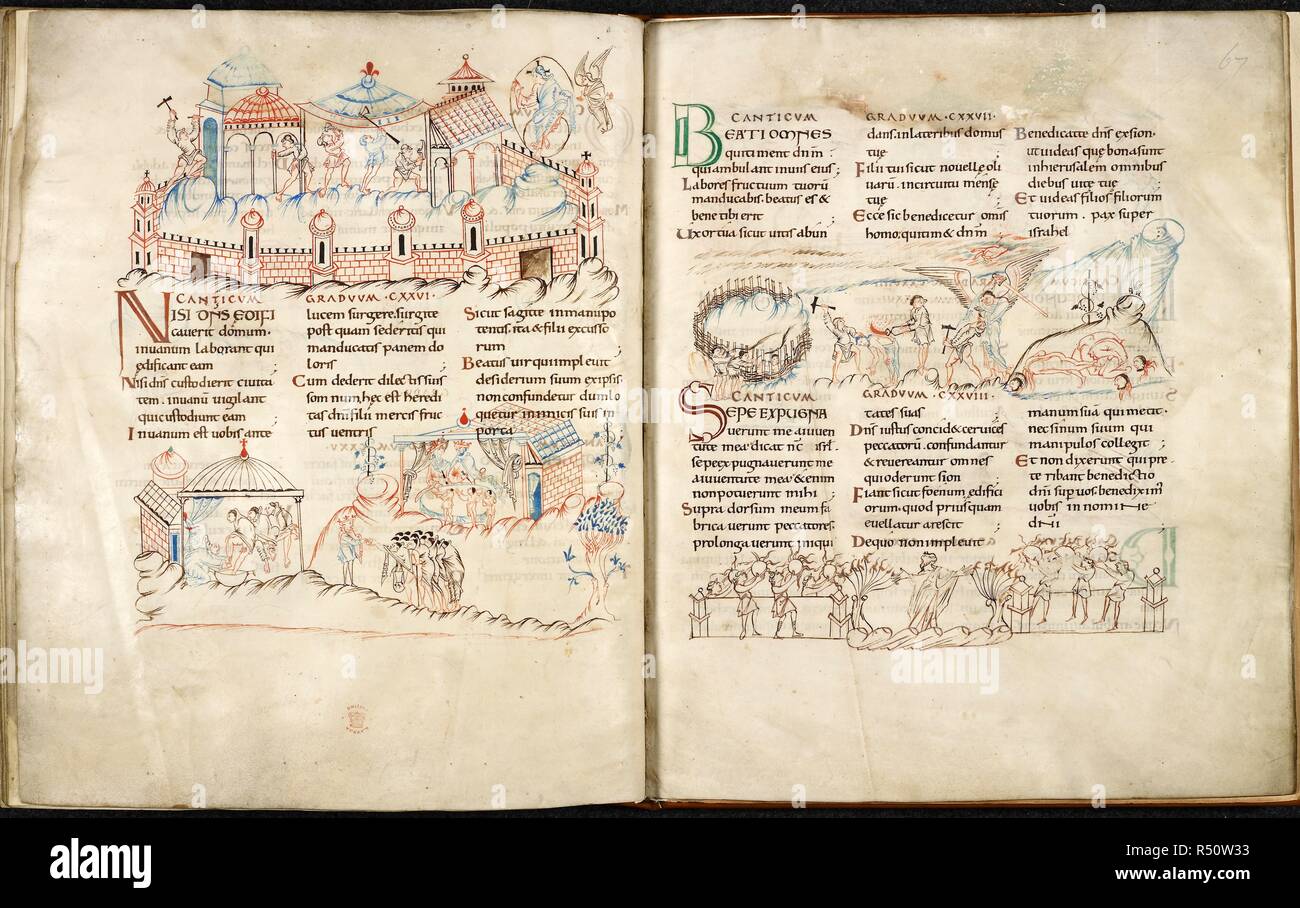 CANTICUM
NISI DNS EDIFI
cauerit domum.
inuanum laborant qui
edificant eam ;
Nisi dns custodierit ciuita
tem. inuanū uigilant
qui custodiunt eam ;
Inuanum est uobis ante
GRADUUM·CXXVI·
lucem surgere. surgite
post quam sederitis qui
manducatis panem do
loris ;
Cum dederit dilectis suis
somnum, hęc est heredi
tas dnī filii mercis fruc
tus ventris ;
Sicut sagitte inmanu po
tentis. ita & filii excusso
rum ;
Beatus uir qui impleuit
desiderium suum exipsis.
non confundetur dum lo
quetur inimicis suis in
porta ;
67
CANTICUM
BEATI OMNES
qui timent dnm̄
qui ambulant inuiis eius ;
Labores fructuum tuorū
manducabis. beatus es &
bene tibi erit ;
Uxor tua sicut uitis abun
GRADUUM·CXXVII·
dans. in lateribus domus
tuę ;
Filii tui sicut nouellę oli
uarū. incircuitu mense
tuę ;
Ecce sic benedicetur omis
homo. qui tim& dnm̄ ;
Benedicat te dns̄ exsion.
ut uideas quę bona sunt
inhierusalem omnibus
diebus uitę tuę ;
Et uideas filios filiorum
tuorum. pax super
israhel ;
CANTICUM
SEPE EXPUGNA
uerunt me a iuuen
tute mea dicat nc̄ isrl̄.
sepe expugnauerunt me
a iuuentute mea & enim
non potuerunt mihi ;
Supra dorsum meum fa
bricauerunt peccatores.
prolongauerunt iniqui
GRADUUM·CXXVIII·
tates suas ;
Dns̄ iustus concidet ceruices
peccatorū. confundantur
& reuereantur omnes
qui oderunt sion ;
Fiant sicut foenum edifici
orum. quod priusquam
euellatur arescit ;
De quo non impleuit
manum suā qui metit.
nec sinum suum qui
manipulos collegit ;
Et non dixerunt qui pre
teribant benedictio
dnī sup uos. benediximꝰ
uobis in nomine
dnī
alamy
alamy
Image ID: R50W33
www.alamy.com